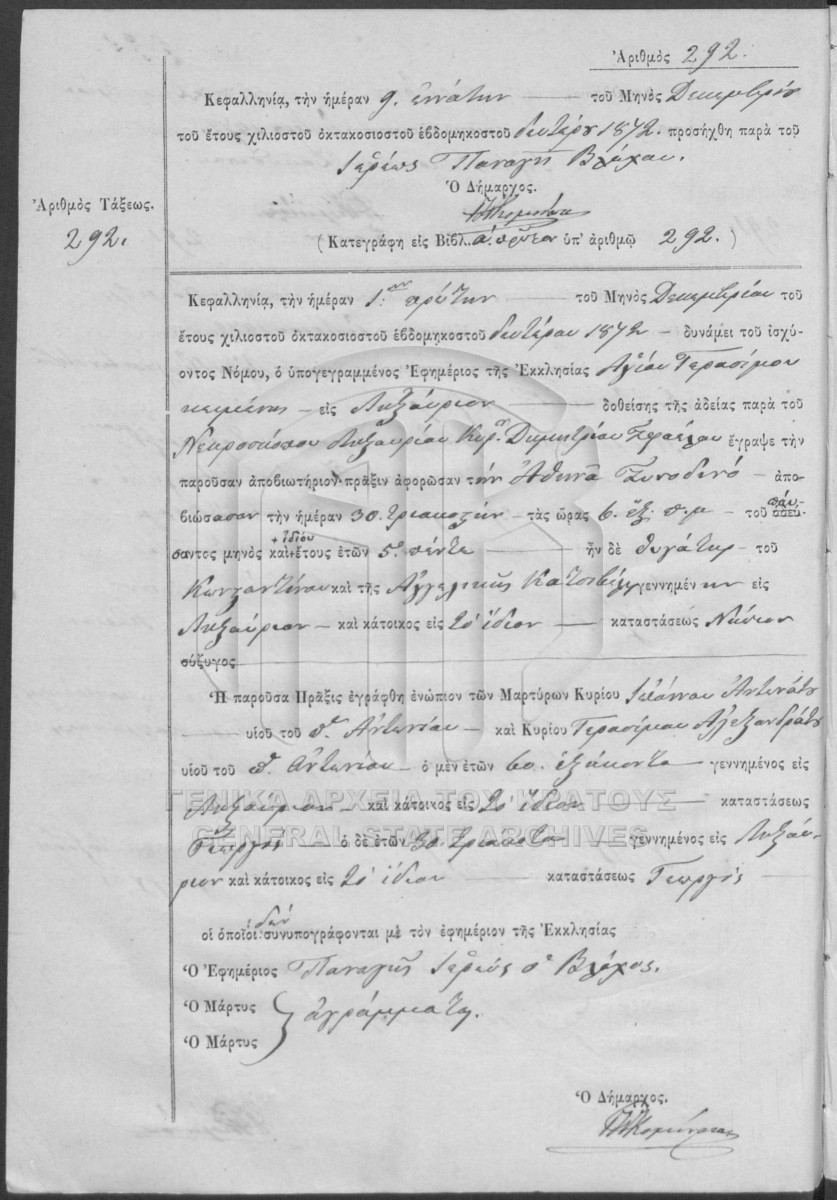 Ἀριθμὸς 292.
Κεφαλληνία, τὴν ἡμέραν 9. ἐννάτην — τοῦ Μηνὸς Δεκεμβρίου
τοῦ ἔτους χιλιοστοῦ ὀκτακοσιοστοῦ ἑβδομηκοστοῦ δευτέρου 1872. προσήχθη παρὰ τοῦ
Ἱερέως Παναγῆ Βλάχου.
Ὁ Δήμαρχος.
Ἀριθμὸς Τάξεως.
292.
(Κατεγράφη εἰς Βιβλ. α. πρῶτον ὑπ' ἀριθμῷ 292.)
Κεφαλληνία, τὴν ἡμέραν 1.ην πρώτην — τοῦ Μηνὸς Δεκεμβρίου τοῦ
ἔτους χιλιοστοῦ ὀκτακοσιοστοῦ ἑβδομηκοστοῦ δευτέρου 1872 — δυνάμει τοῦ ἰσχύ-
οντος Νόμου, ὁ ὑπογεγραμμένος Ἐφημέριος τῆς Ἐκκλησίας Ἁγίου Γερασίμου
κειμένης — εἰς Ληξούριον — δοθείσης τῆς ἀδείας παρὰ τοῦ
Νεκροσκόπου Ληξουρίου Κυρ. Δημητρίου ἔγραψε τὴν
παροῦσαν ἀποβιωτήριον πρᾶξιν ἀφορῶσαν τὴν Ἀθηνᾶ Ξυνοδινό — ἀπο-
βιώσασαν τὴν ἡμέραν 30. τριακοστὴν — τὰς ὥρας 6. ἕξ. π.μ — τοῦ παύ-
σαντος μηνὸς καὶ + ἰδίου ἔτους ἐτῶν 5. πέντε — ἦν δὲ θυγάτηρ — τοῦ
Κωνσταντίνου καὶ τῆς Ἀγγελικῆς γεννημένην εἰς
Ληξούριον — καὶ κάτοικος εἰς τὸ ἴδιον — καταστάσεως Νήπιον
σύζυγος
Ἡ παροῦσα Πρᾶξις ἐγράφθη ἐνώπιον τῶν Μαρτύρων Κυρίου Ἰωάννου Ἀντωνάτου
— υἱοῦ τοῦ π. Ἀντωνίου — καὶ Κυρίου Γερασίμου Ἀλεξανδράτου
υἱοῦ τοῦ π. Ἀντωνίου — ὁ μὲν ἐτῶν 60. ἑξήκοντα — γεννημένος εἰς
Ληξούριον — καὶ κάτοικος εἰς τὸ ἴδιον — καταστάσεως
Γεωργὸς ὁ δὲ ἐτῶν 30. τριάκοντα γεννημένος εἰς Ληξού-
ριον καὶ κάτοικος εἰς τὸ ἴδιον — καταστάσεως Γεωργός —
οἱ ὁποῖοι δὲν συνυπογράφονται μὲ τὸν ἐφημέριον τῆς Ἐκκλησίας
Ὁ Ἐφημέριος Παναγῆς Ἱερεὺς ὁ Βλάχος.
Ὁ Μάρτυς
ἀγράμματοι.
Ὁ Μάρτυς
Ὁ Δήμαρχος.
ΓΕΝΙΚΑ ΑΡΧΕΙΑ ΤΟΥ ΚΡΑΤΟΥΣ
GENERAL STATE ARCHIVES